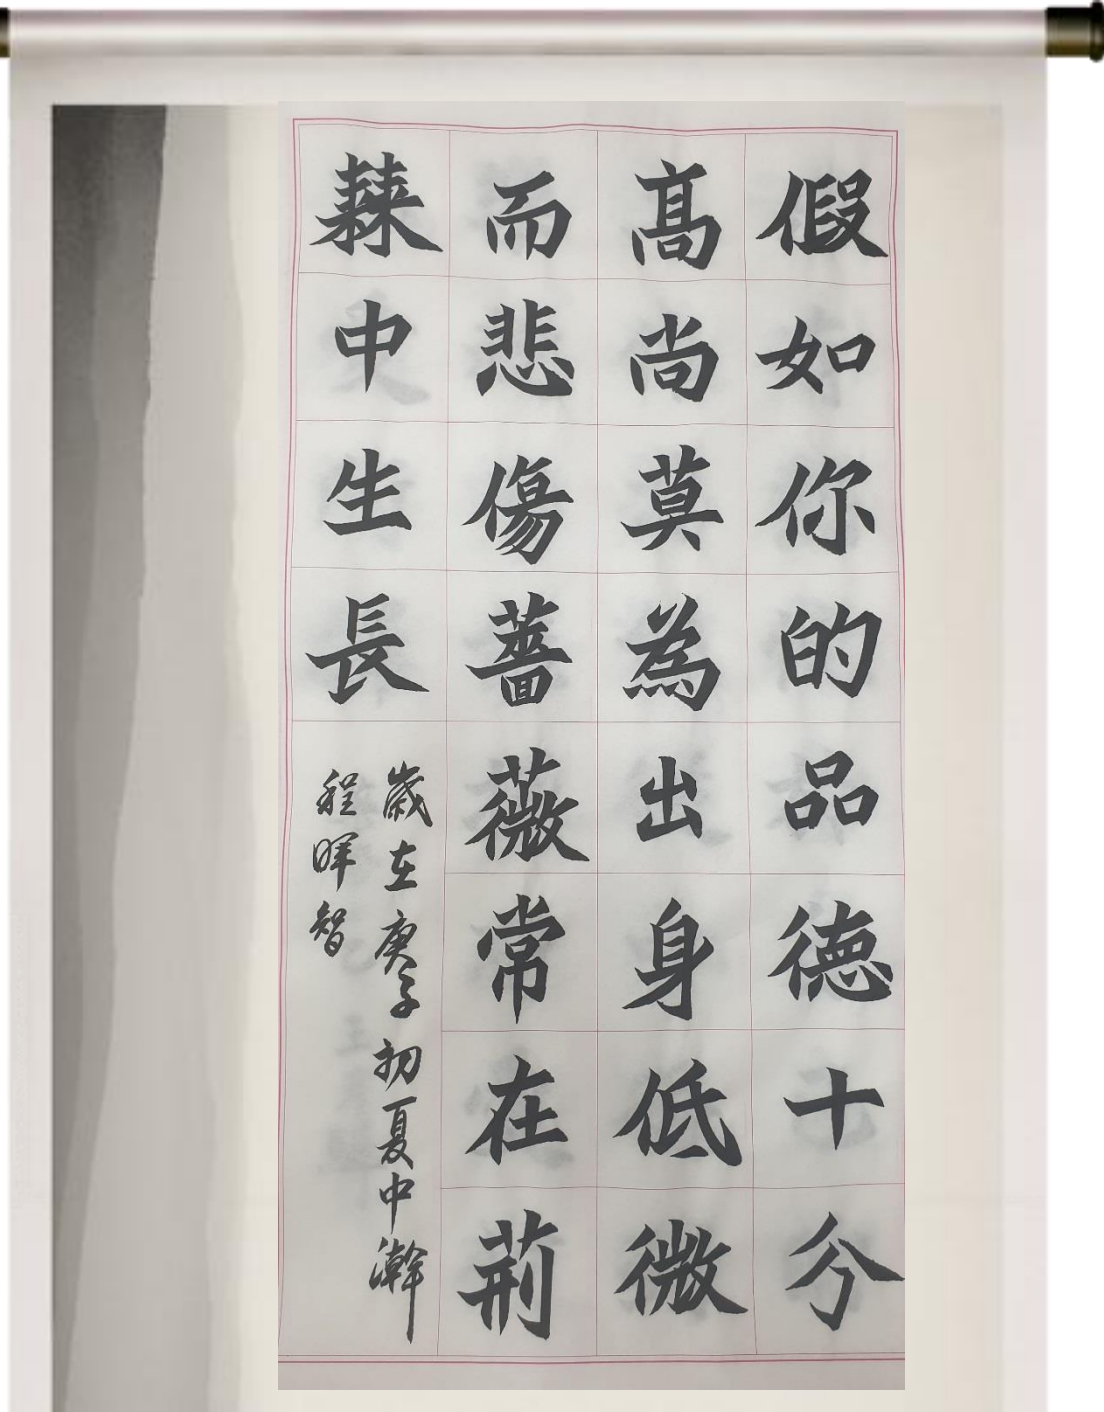 假如你的品德十分
高尚莫為出身低微
而悲傷薔薇常在荊
棘中生長
歲在庚子初夏中瀚
程暉智